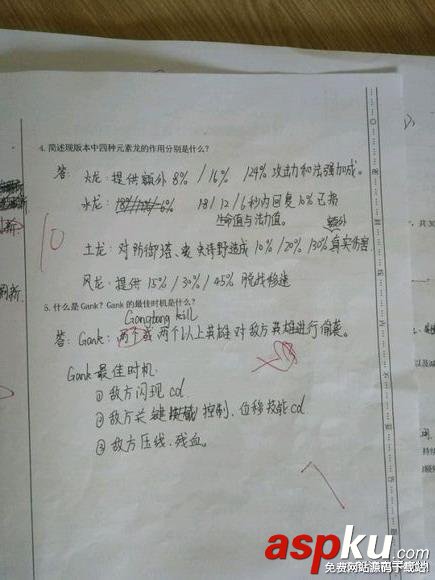 4. 简述现版本中四种元素龙的作用分别是什么?
答: 火龙: 提供额外 8% / 16% / 24% 攻击力和法强加成。
水龙: 18 / 12 / 6秒内回复 10% 已损
生命值与法力值。
额外
土龙: 对防御塔、史诗野造成 10% / 20% / 30% 真实伤害
10
风龙: 提供 15% / 30% / 45% 脱战移速
5. 什么是 Gank? Gank 的最佳时机是什么?
Gangbang kill
答: Gank: 两个或两个以上英雄对敌方英雄进行偷袭。
Gank最佳时机
① 敌方闪现cd
② 敌方关键控制、位移技能cd
③ 敌方压线、残血。
7
aspku.com
免费网站源码下载站!